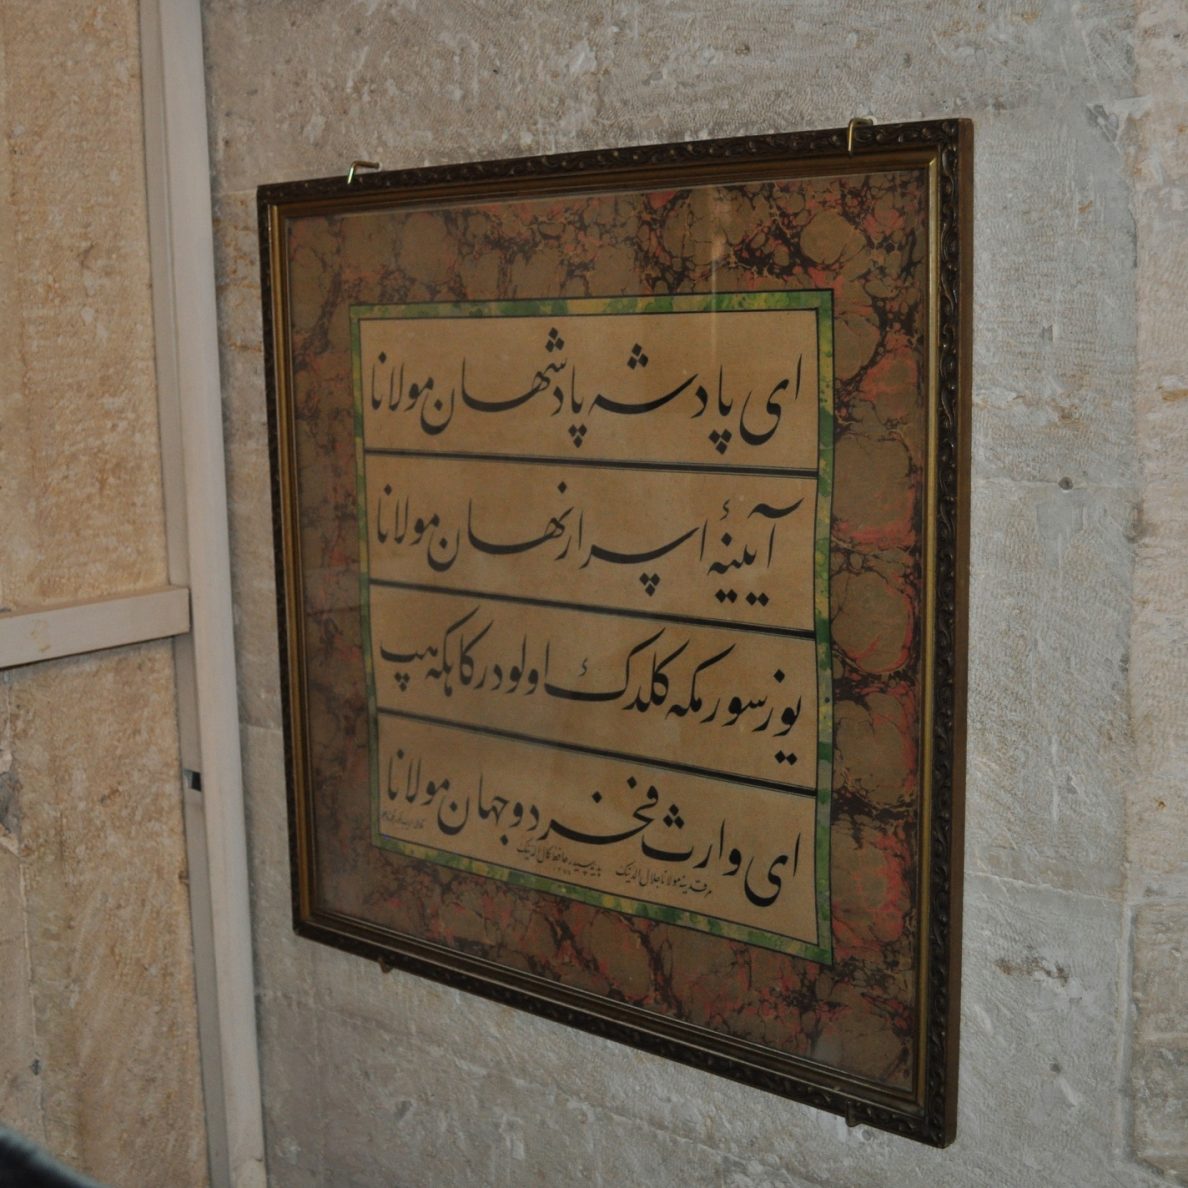 ای پادشه پادشهان مولانا
آیینهٔ اسرار نهان مولانا
یوز سورمکه کلدك اولو درکاهکه هپ
ای وارث فخر دو جهان مولانا
مرقدینه مولانا جلال الدینك